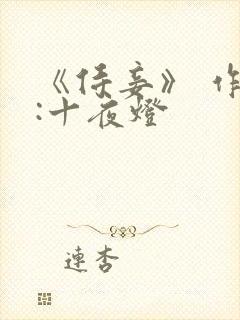 《侍妾》 作
:十夜燈
連杏